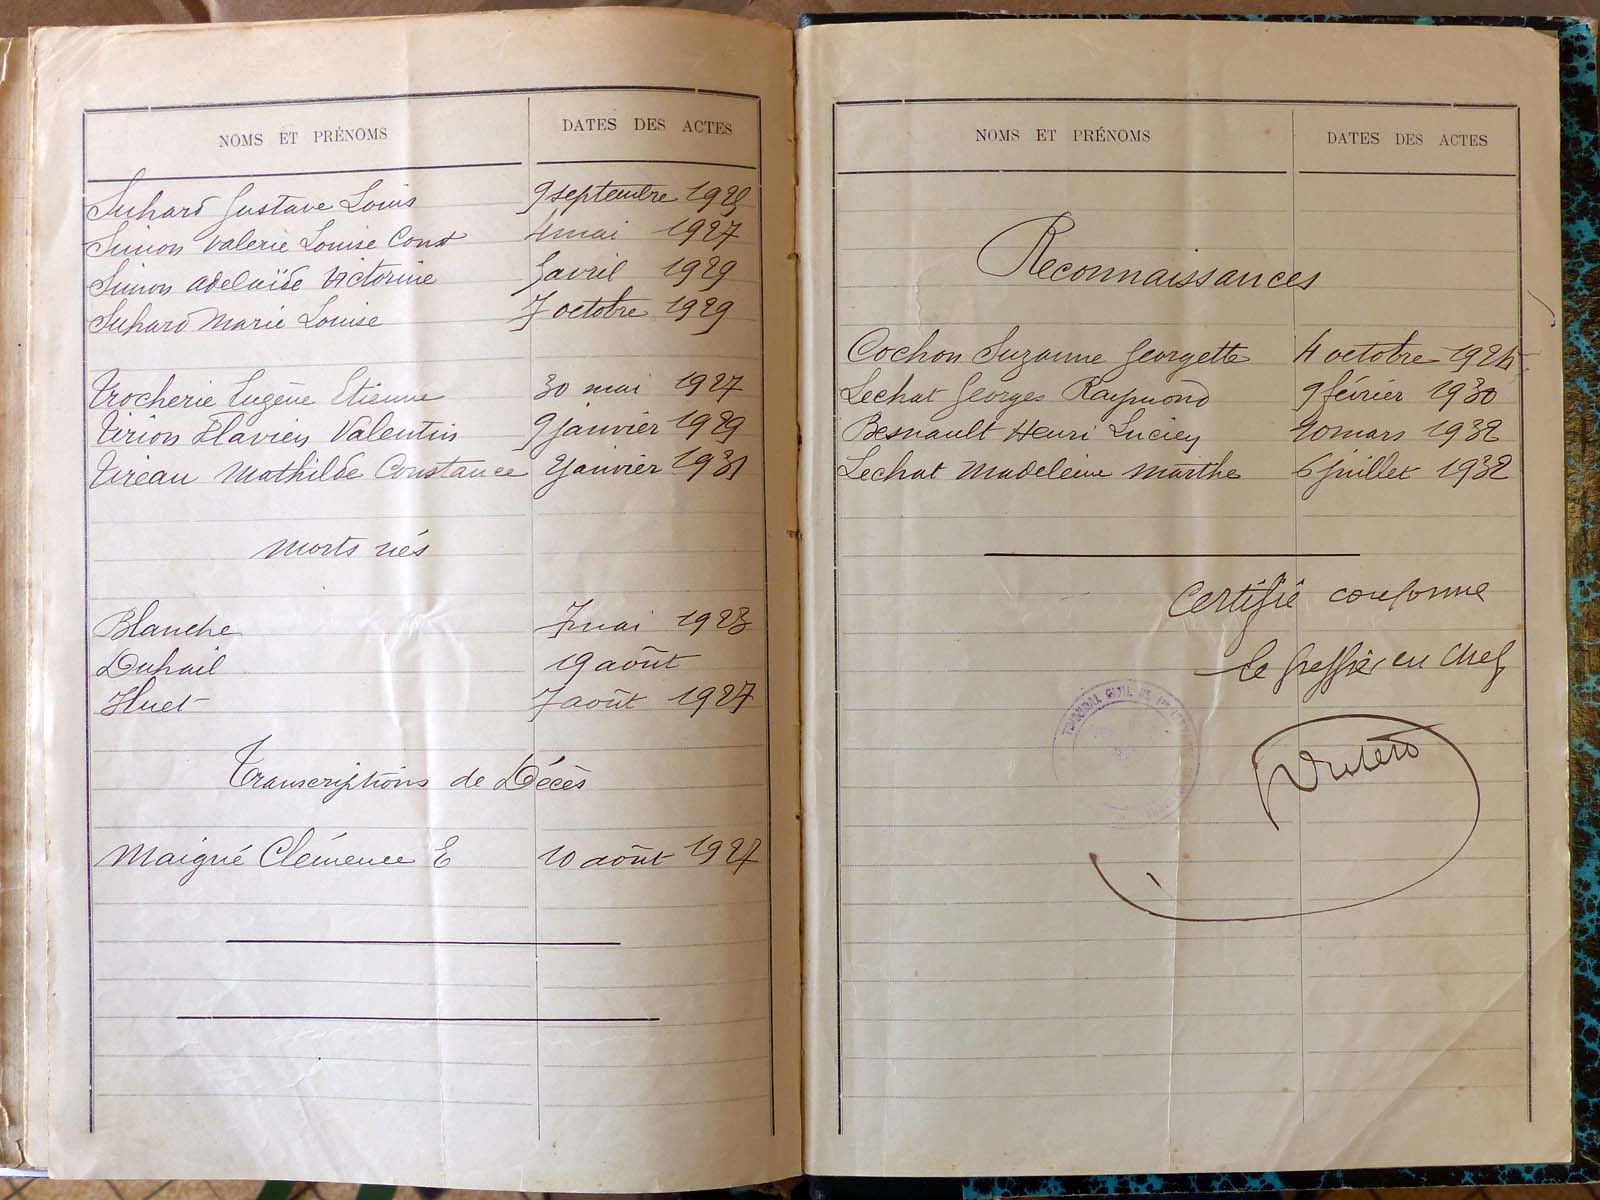 NOMS ET PRÉNOMS DATES DES ACTES
Suhard Gustave Louis 9 septembre 1929
Simon Valerie Louise Const 4 mai 1927
Simon Adelaïde Victorine avril 1929
Suhard Marie Louise 7 octobre 1929
Trocherie Eugène Etienne 30 mai 1927
Tirion Flavien Valentin 9 janvier 1929
Tireau Mathilde Constance 2 janvier 1931
Morts nés
Blanche 7 mai 1923
Duhail 19 août
Huet 7 août 1927
Transcriptions de Décès
Maigné Clémence E 10 août 1927
NOMS ET PRÉNOMS DATES DES ACTES
Reconnaissances
Cochon Suzanne Georgette 4 octobre 1924
Lechat Georges Raymond 9 février 1930
Besnault Henri Lucien 20 mars 1932
Lechat Madeleine Marthe 6 juillet 1932
Certifié conforme
Le Greffier en Chef
TRIBUNAL CIVIL DE